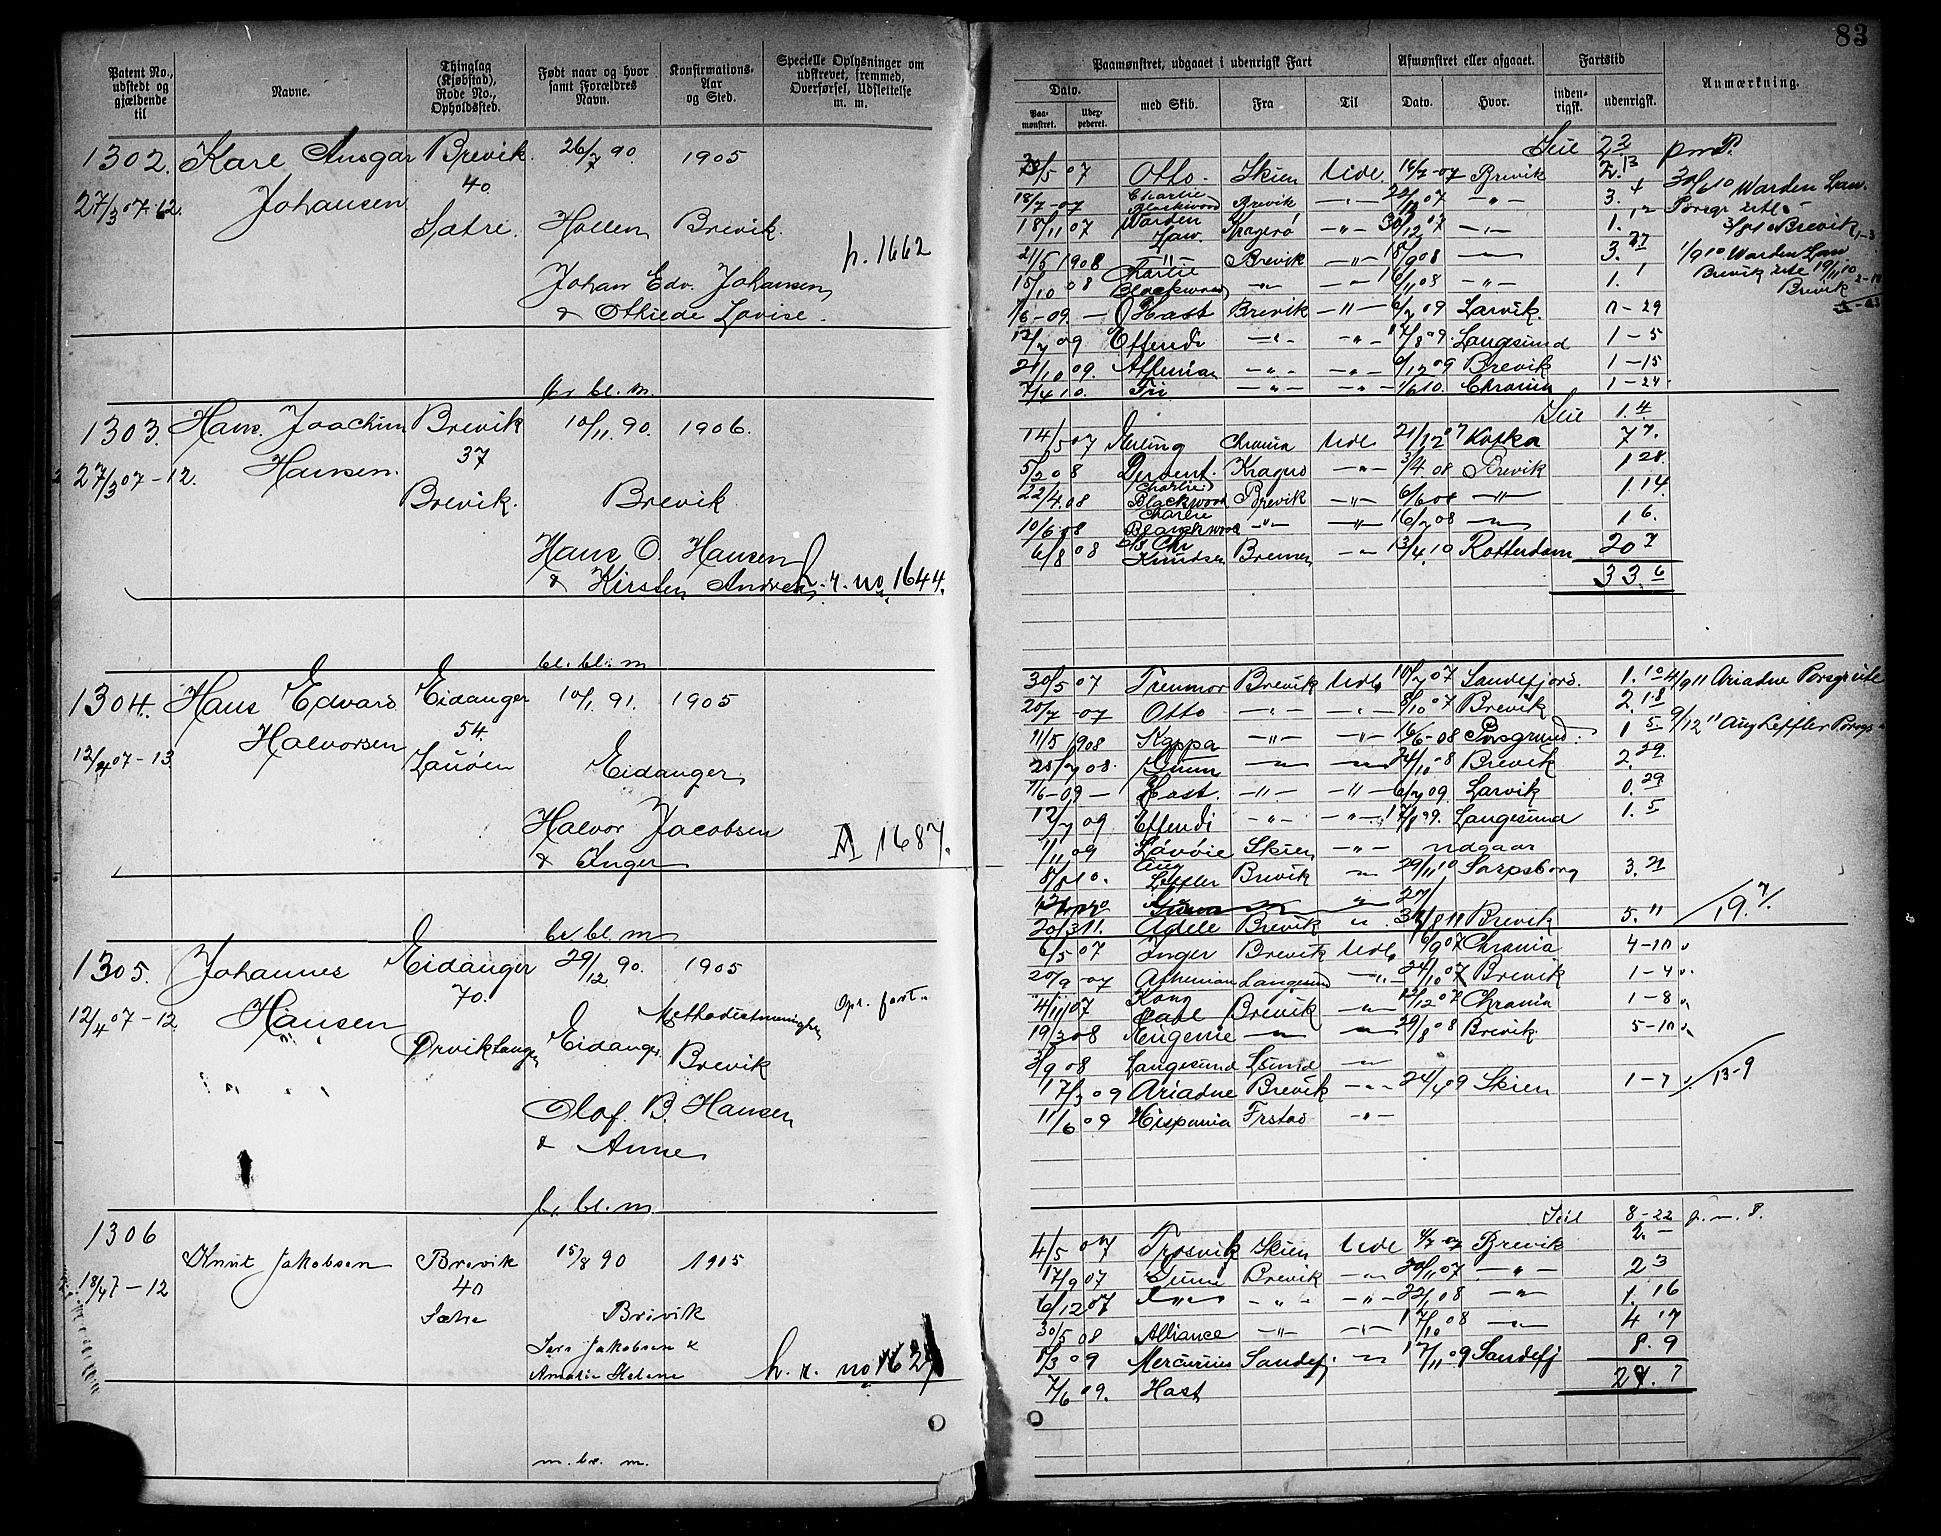 83
Patent No., udstedt og gjældende til
Navne.
Thinglag (Kjøbstad), Rode No., Opholdssted.
Født naar og hvor samt Forældres Navn.
Konfirmations-Aar og Sted.
Specielle Oplysninger om udskrevet, fremmed, Overførsel, Udslettelse m. m.
Paamønstret, udgaaet i udenrigsk Fart
Afmønstret eller afgaaet.
Fartstid
Anmærkning.
Dato.
Paa-mønstret.
med Skib.
Fra
Til
Dato.
Hvor.
inden-rigsk.
udenrigsk.
1302. Karl Ansgar Brevik. 26/7 90. 1905
27/3 07-12. Johansen 40
Satre. Hollen Brevik.
h. 1662
Johan Edv. Johansen
& Othilde Lovise.
br. bl. m.
1303. Hans Joachim Brevik 10/11 90. 1906.
27/3 07-12. Hansen. 37
Brevik. Brevik
Hans O. Hansen
& Kirsten Andrea h. r. no 1644.
bl. bl. m
1304. Hans Edvard Eidanger 10/1 91. 1905
12/4 07-13 Halvorsen 54.
Eidanger
Halvor Jacobsen
& Inger A 1687.
br. bl. m
1305. Johannes Eidanger 29/12 90. 1905
12/4 07-12 Hansen 70.
Methodistmenigh. Opr. fort.
Ørviktangen Eidanger Brevik
Olof B. Hansen
& Anne
br. bl. m.
1306
Knut Jakobsen Brevik 15/8 90 1905
18/4 7-12 40
Satre Brevik
Lars Jakobsen &
Amalie Helene h. r. no 162
m. br. m.
Seil 22 pmP.
5 07 Otto Skien Udl. 16/7-07 Brevik 2.13
18/7-07 Charlie Blackwood Brevik -"- 07 -"- 3. 4
18/11 07 Warden Law. Kragerø -"- 30/12 07 -"- 1. 12
21/5 1908 -"- Brevik -"- 18/9 08 -"- 3. 27
15/10 08 Charlie Blackwood -"- -"- 16/11 08 -"- 1. 1
1/6-09. - Hast Brevik -"- 6/7 09 Larvik. 0-29
12/7 09 Effendi -"- -"- 17/8 09. Langesund 1-5
21/10 09. Athenian -"- -"- 6/12 09 Brevik 1-15
7/4 10. Fri -"- -"- 1/6 10. Chrania 1-24
30/6 10 Warden Law.
Porsgr. utl.
3/8 10 Brevik 1-3
1/9 10 Warden Law
Brevik utl 19/11 10
Brevik 2-18
Seil 1. 4
14/5 07 Sterling Chrania Udl. 21/12 07 Kotka 7 7.
5/2 08 Derwent. Kragerø -"- 3/4 08 Brevik 1 28.
22/4 08 Charlie Blackwood Brevik -"- 6/6 08 -"- 1. 14.
10/6 08 Charlie Blackwood -"- -"- 16/7 08 -"- 1 6.
6/8 08 D/S Chr Knudsen Bremen -"- 13/4 10 Rotterdam 20 7
33. 6
30/5 07 Trenmor Brevik Udl. 10/7 07 Sandefjord. 1. 10 4/9 11 Ariadne Porsgr utl
20/7-07 Otto -"- -"- 8/10 07 Brevik 2. 18
11/5 1908 Kappa -"- -"- 16/6-08 Porsgrund. 1 5 9/12 11 Aug Leffler Porsgr
25/7 08. Gunn -"- -"- 24/10 08 Brevik 2. 29.
7/6-09 - Hast. -"- -"- 6/7 09. Larvik 0. 29
12/7 09 Effendi -"- -"- 17/8 09. Langesund 1. 5
1/11 09 Løvøie Skien -"- udgaar
8/8 10. Aug Leffler Brevik -"- 29/11 10 Sarpsborg 3. 21
20/3 11. Adele Brevik " 31/8 11 Brevik 5. 11
19. 7.
6/5 07 Inger Brevik Udl. 16/9 07 Chrania 4-10
20/9-07 Athenian Langesund -"- 24/10 07 Brevik 1-4
4/11 07 Kong Carl Brevik -"- 12/12 07 Chrania 1-8
19/3 08 Eugenie -"- -"- 29/8 08 Brevik 5-10
3/9 08 Langesund Lsund -"-
17/3 09 Ariadne Brevik -"- 24/4 09 Skien 1-7 13-9
11/6 09 Hispania Frstad -"-
Seil 8-22 p. m. P.
4/5 07 Trosvik Skien Udl 4/7 07 Brevik 2. -
17/9 07 Gunn Brevik -"- 20/11 07 -"- 2 3
6/12 07 -"- -"- -"- 22/1 08 -"- 1. 16
30/5 08 Alliance -"- -"- 17/10 08 -"- 4 17
8/3 09 Mercurius Sandefj. -"- 17/11 09 Sandefj 8. 9
7/6 09. Hast 27. 7